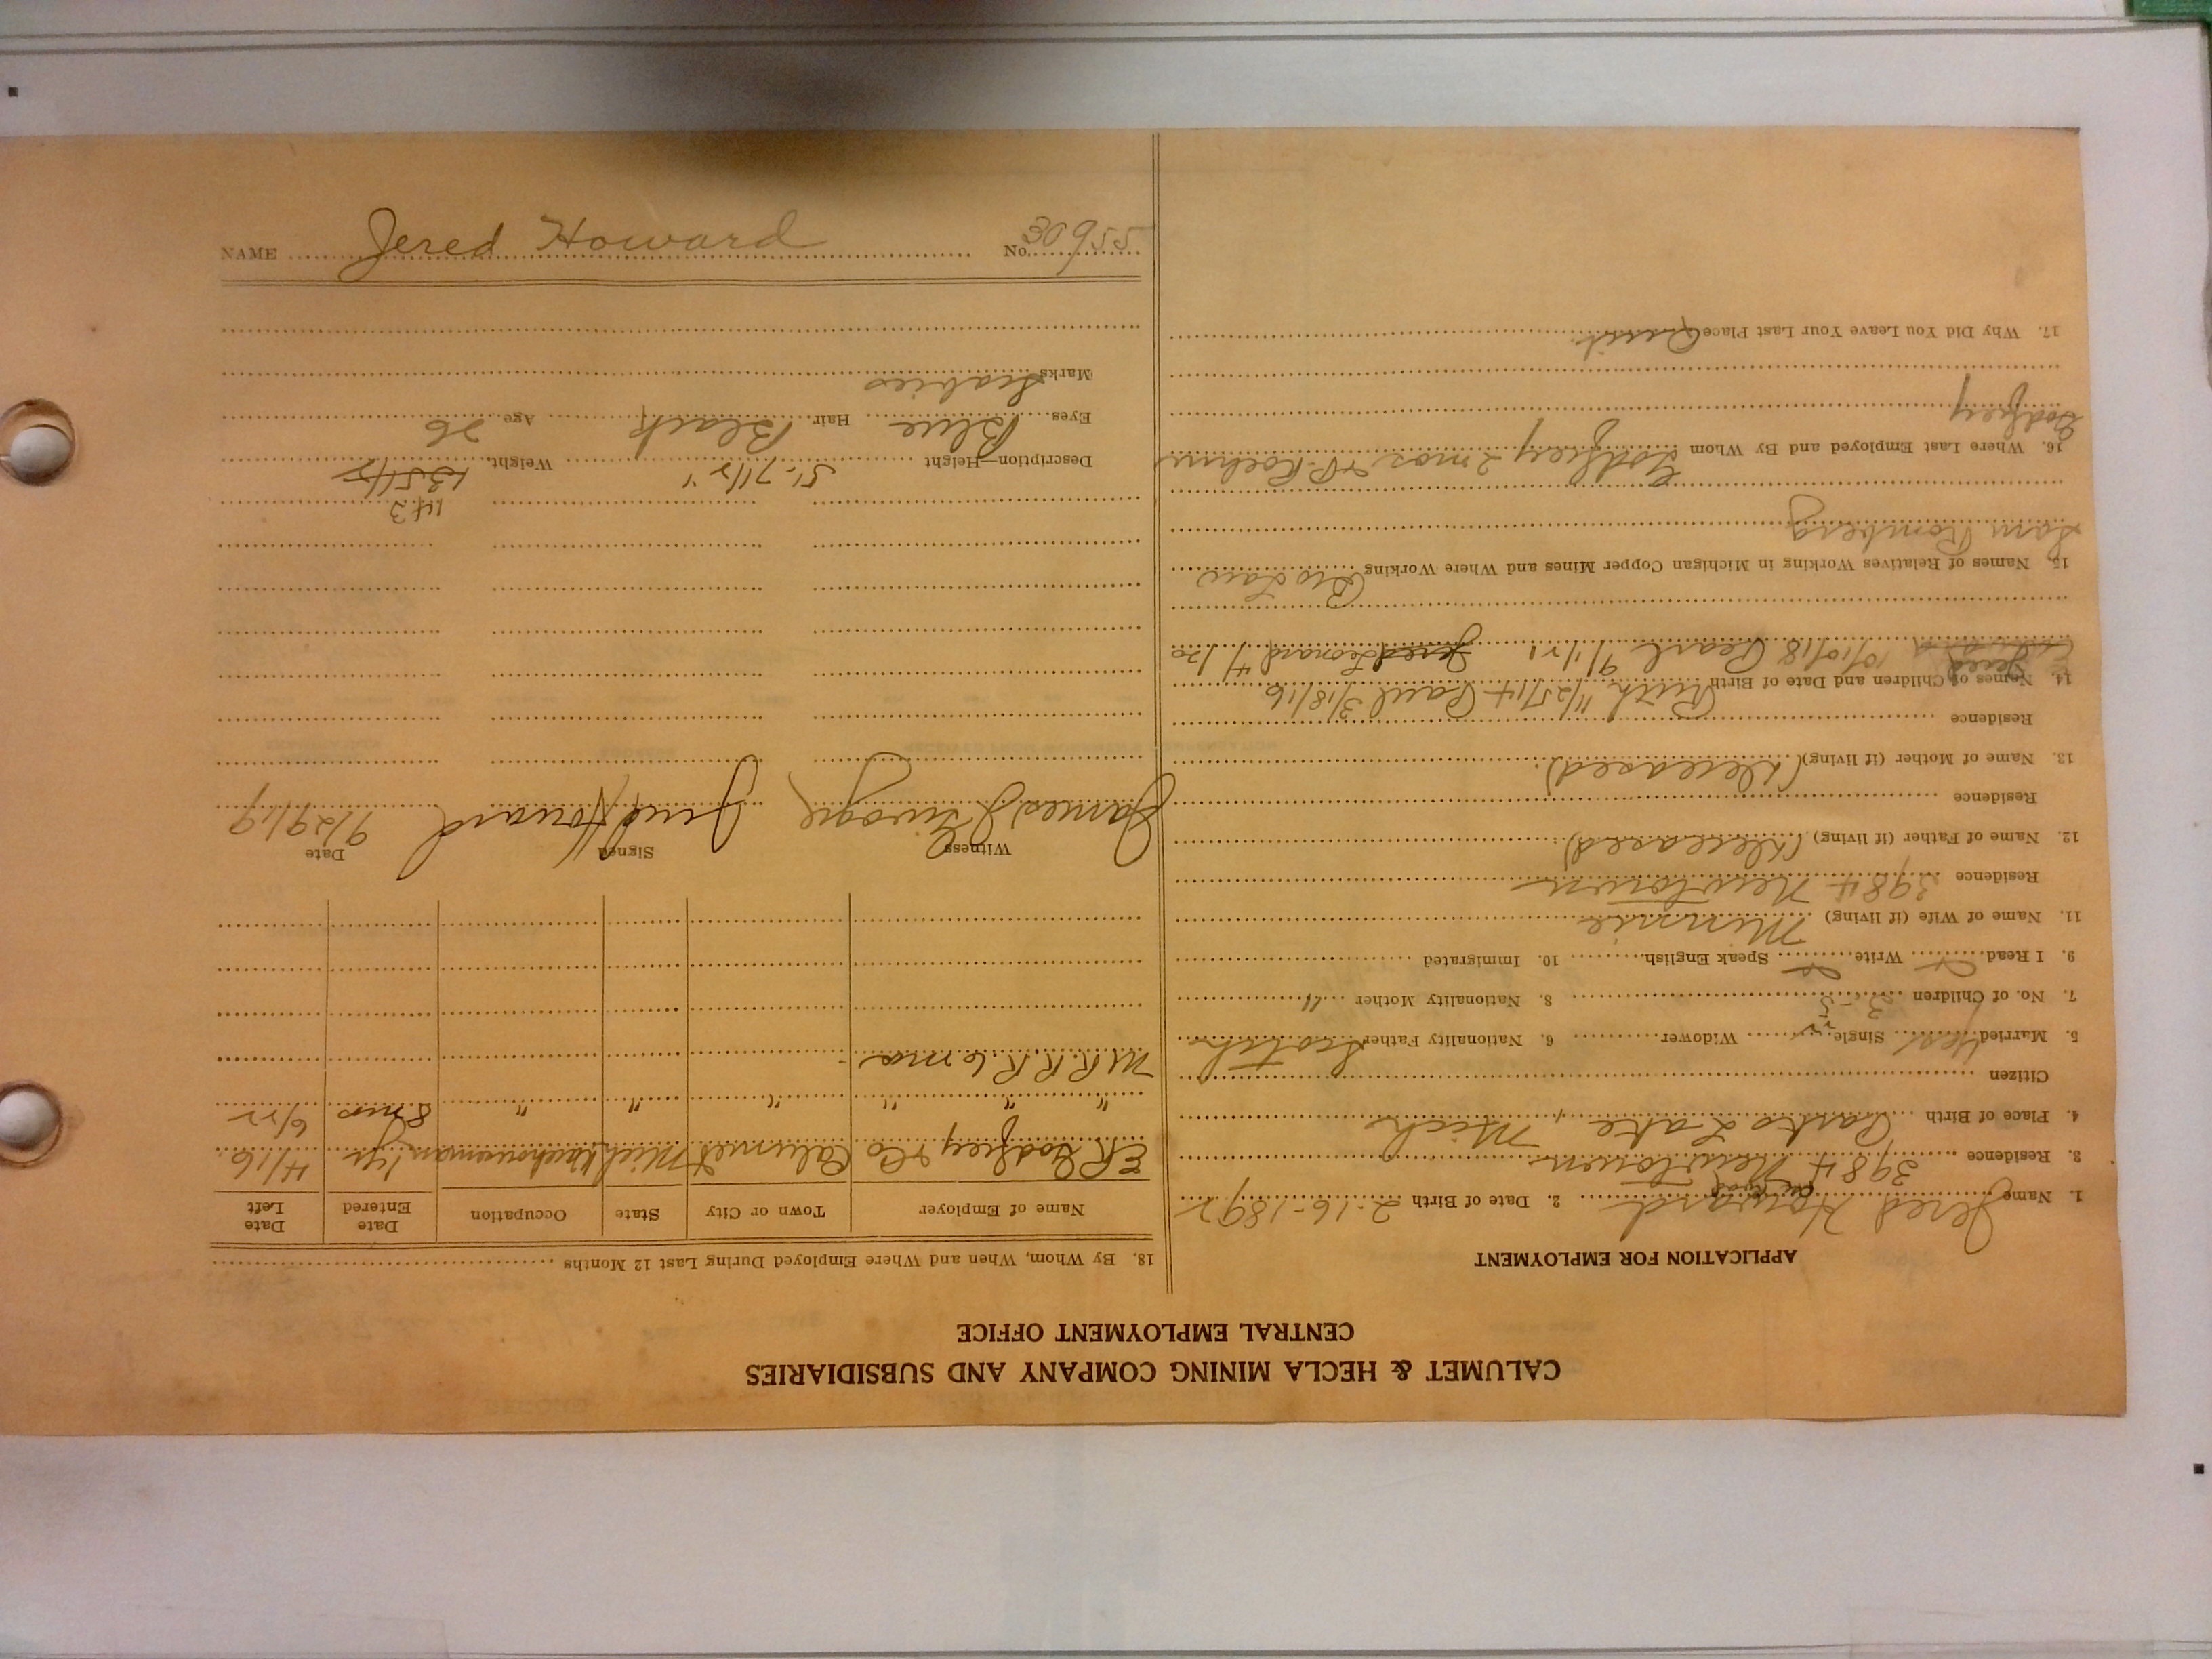 CALUMET & HECLA MINING COMPANY AND SUBSIDIARIES
CENTRAL EMPLOYMENT OFFICE
APPLICATION FOR EMPLOYMENT
1. Name Jered Howard 2. Date of Birth 2-16-1892
3. Residence 3984 Newtown
4. Place of Birth Lake, Mich
Citizen
5. Married Yes Single Widower 6. Nationality Father Scotch
7. No. of Children 8. Nationality Mother "
9. I Read Write Speak English 10. Immigrated
11. Name of Wife (if living) Minnie
Residence 3984 Newtown
12. Name of Father (if living) (deceased)
Residence
13. Name of Mother (if living) (deceased)
Residence
14. Names of Children and Date of Birth Ruth 11/25/14 Paul 3/18/16
Jered 10/10/18 Pearl 9/1/21 Jered Leonard 4/20
15. Names of Relatives Working in Michigan Copper Mines and Where Working Bro Law
Sam Romberg
16. Where Last Employed and By Whom Godfrey 2 mos
Godfrey
17. Why Did You Leave Your Last Place Quit.
18. By Whom, When and Where Employed During Last 12 Months
Name of Employer Town or City State Occupation Date Entered Date Left
E R Godfrey & Co Calumet Mich Warehouseman 1 yr 4/16
" " " " " " 8 mos 6/22
M.R.R.R. 6 mos
Witness Signed Date
James Jered Howard 9/29/19
143
Description—Height 5'-7 1/2" Weight 135 1/2
Eyes Blue Hair Black Age 26
Marks Scabies
NAME Jered Howard No. 30955